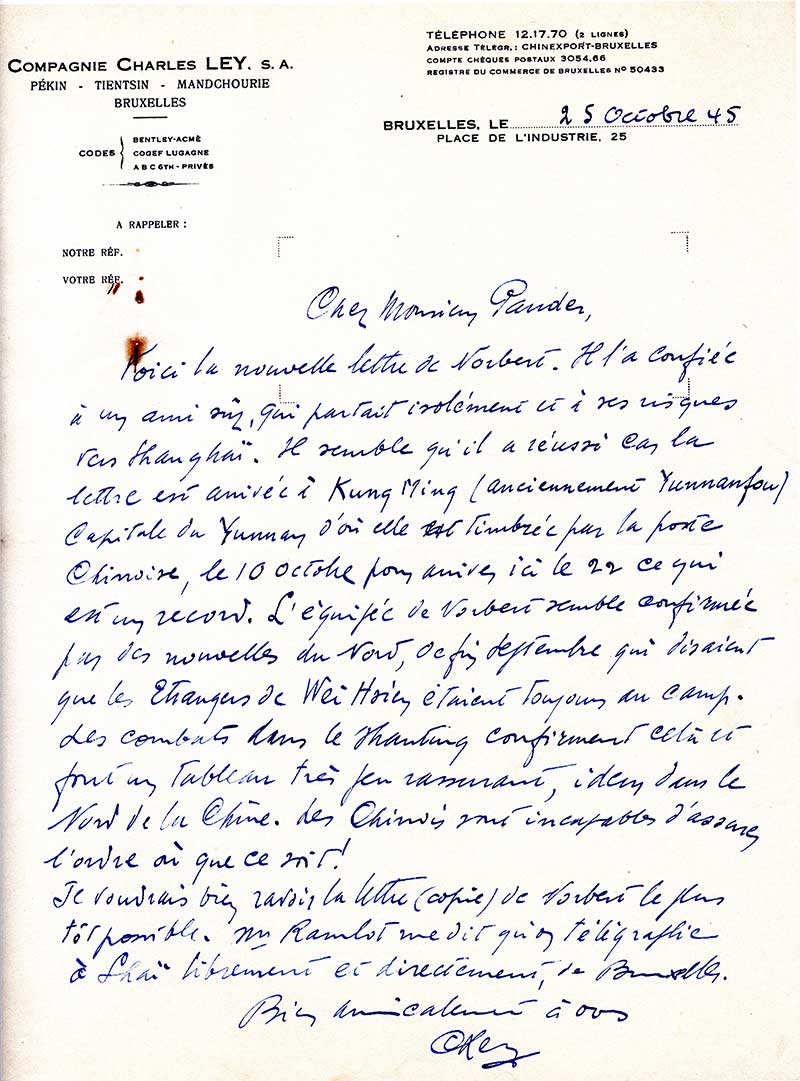 COMPAGNIE CHARLES LEY, S. A.
PÉKIN - TIENTSIN - MANDCHOURIE
BRUXELLES
CODES
BENTLEY-ACMÉ
COGEF LUGAGNE
A B C 6TH - PRIVÉS
TÉLÉPHONE 12.17.70 (2 LIGNES)
ADRESSE TÉLÉGR.: CHINEXPORT-BRUXELLES
COMPTE CHÈQUES POSTAUX 3054,66
REGISTRE DU COMMERCE DE BRUXELLES NO 50433
BRUXELLES, LE 25 Octobre 45
PLACE DE L'INDUSTRIE, 25
A RAPPELER :
NOTRE RÉF.
VOTRE RÉF.
Cher Monsieur Pander,
Voici la nouvelle lettre de Norbert. Il l'a confiée
à un ami sûr, qui partait isolément et à ses risques
vers Shanghaï. Il semble qu'il a réussi car la
lettre est arrivée à Kung Ming (anciennement Yunnanfou)
Capitale du Yunnan d'où elle est timbrée par la poste
Chinoise, le 10 Octobre pour arriver ici le 22 ce qui
est un record. L'équipée de Norbert semble confirmée
par des nouvelles du Nord, de fin Septembre qui disaient
que les Etrangers de Wei Hsien étaient toujours au camp.
Les combats dans le Shantung confirment celà et
font un tableau très peu rassurant, idem dans le
Nord de la Chine. Les Chinois sont incapables d'assurer
l'ordre où que ce soit!
Je voudrais bien ravoir la lettre (copie) de Norbert le plus
tôt possible. Mr Ramlot me dit qu'on télégraphie
à Shaï librement et directement, de Bruxelles.
Bien amicalement à vous
CLey